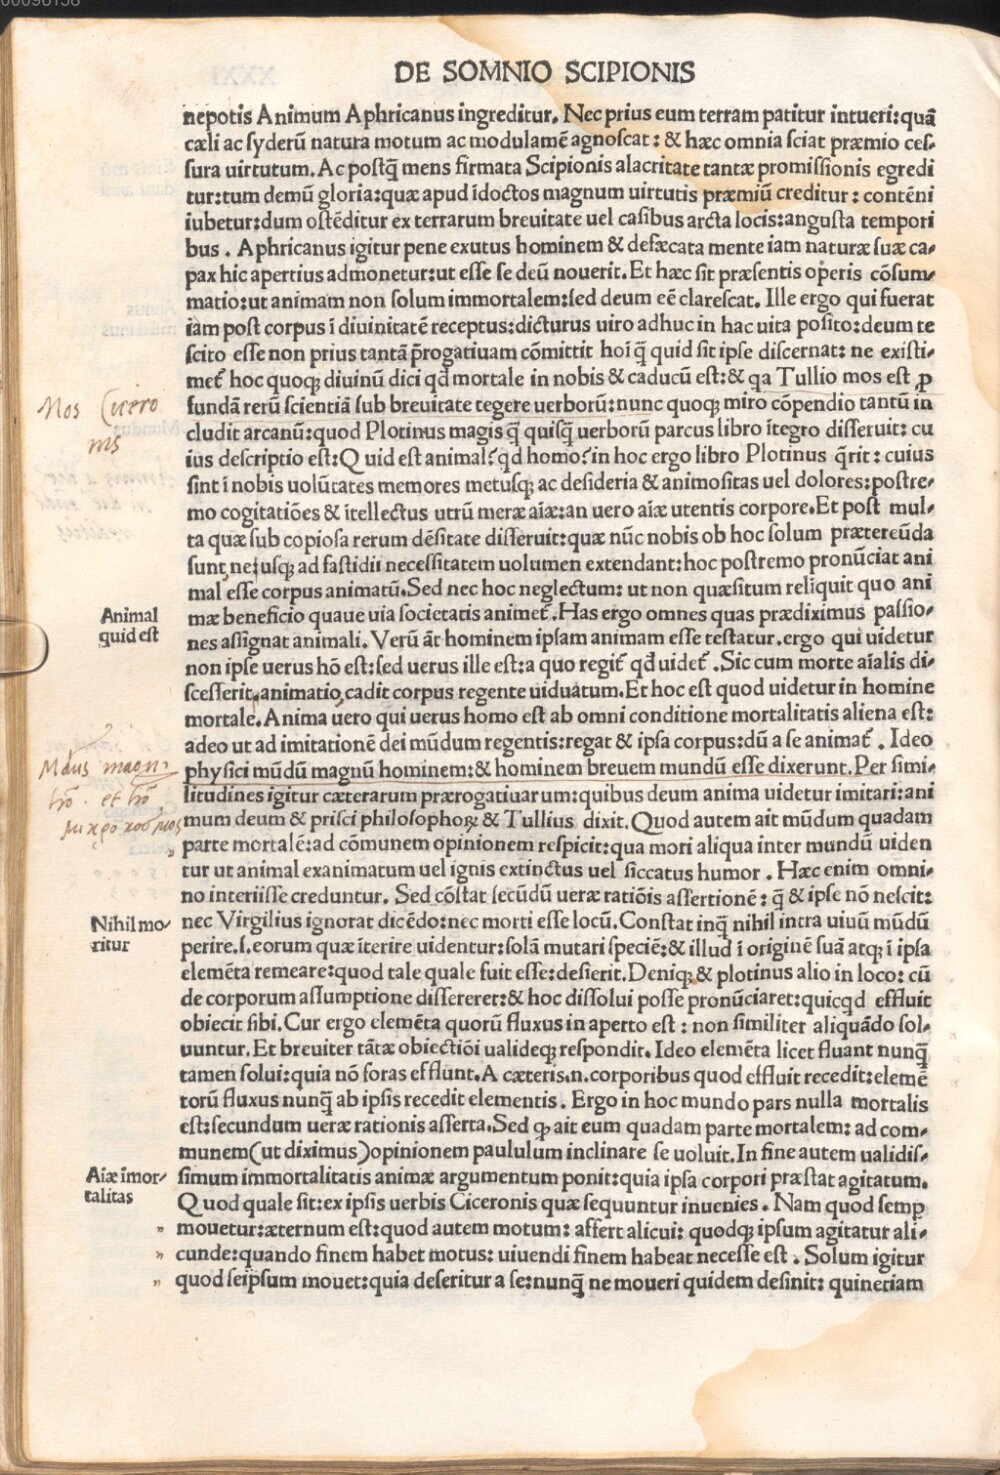 DE SOMNIO SCIPIONIS
nepotis Animum Aphricanus ingreditur. Nec prius eum terram patitur intueri:quã
cæli ac syderũ natura motum ac modulamẽ agnoscat: & hæc omnia sciat præmio ces-
sura uirtutum. Ac postq̃ mens firmata Scipionis alacritate tantæ promissionis egredi
tur:tum demũ gloria:quæ apud ĩdoctos magnum uirtutis præmiũ creditur: contẽni
iubetur:dum ostẽditur ex terrarum breuitate uel casibus arcta locis:angusta tempori
bus. Aphricanus igitur pene exutus hominem & defæcata mente iam naturæ suæ ca-
pax hic apertius admonetur:ut esse se deũ nouerit. Et hæc sit præsentis operis cõsum-
matio:ut animam non solum immortalem:sed deum eẽ clarescat. Ille ergo qui fuerat
iam post corpus ĩ diuinitatẽ receptus:dicturus uiro adhuc in hac uita posito:deum te
scito esse non prius tantã p̃rogatiuam cõmittit hoĩ q̃ quid sit ipse discernat: ne existi-
met᷑ hoc quoqꝫ diuinũ dici qd̃ mortale in nobis & caducũ est:& qa Tullio mos est ꝓ
fundã rerũ scientiã sub breuitate tegere uerborũ:nunc quoqꝫ miro cõpendio tantũ in
cludit arcanũ:quod Plotinus magis q̃ quisq̃ uerborũ parcus libro ĩtegro disseruit: cu
ius descriptio est:Quid est animal?qd homo?in hoc ergo libro Plotinus q̃rit: cuius
sint ĩ nobis uolũtates memores metusqꝫ ac desideria & animositas uel dolores:postre-
mo cogitatiões & ĩtellectus utrũ meræ aĩæ:an uero aĩæ utentis corpore.Et post mul-
ta quæ sub copiosa rerum dẽsitate disseruit:quæ nũc nobis ob hoc solum prætereũda
sunt, ne usqꝫ ad fastidii necessitatem uolumen extendant:hoc postremo pronũciat ani
mal esse corpus animatũ.Sed nec hoc neglectum: ut non quæsitum reliquit quo ani
mæ beneficio quaue uia societatis animet᷑.Has ergo omnes quas prædiximus passio-
nes assignat animali. Verũ ãt hominem ipsam animam esse testatur.ergo qui uidetur
non ipse uerus hõ est:sed uerus ille est:a quo regit᷑ qd̃ uidet᷑. Sic cum morte aĩalis di-
scesserit animatio,cadit corpus regente uiduatum.Et hoc est quod uidetur in homine
mortale.Anima uero qui uerus homo est ab omni conditione mortalitatis aliena est:
adeo ut ad imitationẽ dei mũdum regentis:regat & ipsa corpus:dũ a se animat᷑. Ideo
physici mũdũ magnũ hominem:& hominem breuem mundũ esse dixerunt.Per simi-
litudines igitur cæterarum prærogatiuarum:quibus deum anima uidetur imitari:ani
mum deum & prisci philosophoꝝ & Tullius dixit.Quod autem ait mũdum quadam
parte mortalẽ:ad cõmunem opinionem respicit:qua mori aliqua inter mundũ uiden
tur ut animal exanimatum uel ignis extinctus uel siccatus humor. Hæc enim omni-
no interiisse creduntur. Sed cõstat secũdũ ueræ ratiõis assertionẽ: q̃ & ipse nõ nescit:
nec Virgilius ignorat dicẽdo:nec morti esse locũ.Constat inq̃ nihil intra uiuũ mũdũ
perire.s.eorum quæ ĩterire uidentur:solã mutari speciẽ:& illud ĩ originẽ suã atqꝫ ĩ ipsa
elemẽta remeare:quod tale quale fuit esse:desierit.Deniqꝫ & plotinus alio in loco: cũ
de corporum assumptione dissereret:& hoc dissolui posse pronũciaret:quicqd effluit
obiecit sibi.Cur ergo elemẽta quorũ fluxus in aperto est: non similiter aliquãdo sol-
uuntur.Et breuiter tãtæ obiectiõi ualideqꝫ respondit. Ideo elemẽta licet fluant nunq̃
tamen solui:quia nõ foras efflunt.A cæteris.n.corporibus quod effluit recedit:elemẽ
torũ fluxus nunq̃ ab ipsis recedit elementis. Ergo in hoc mundo pars nulla mortalis
est:secundum ueræ rationis asserta.Sed ꝙ ait eum quadam parte mortalem: ad com-
munem(ut diximus)opinionem paululum inclinare se uoluit.In fine autem ualidis-
simum immortalitatis animæ argumentum ponit:quia ipsa corpori præstat agitatum.
Quod quale sit:ex ipsis uerbis Ciceronis quæ sequuntur inuenies. Nam quod semꝑ
mouetur:æternum est:quod autem motum: affert alicui: quodqꝫ ipsum agitatur ali-
cunde:quando finem habet motus: uiuendi finem habeat necesse est. Solum igitur
quod seipsum mouet:quia deseritur a se:nunq̃ ne moueri quidem desinit: quinetiam
Mos Cicero
nis
Animal
quid est
Mdus magn⁹
hõ. et hõ
μικρο κοσμος
Nihil mo-
ritur
Aĩæ ĩmor-
talitas